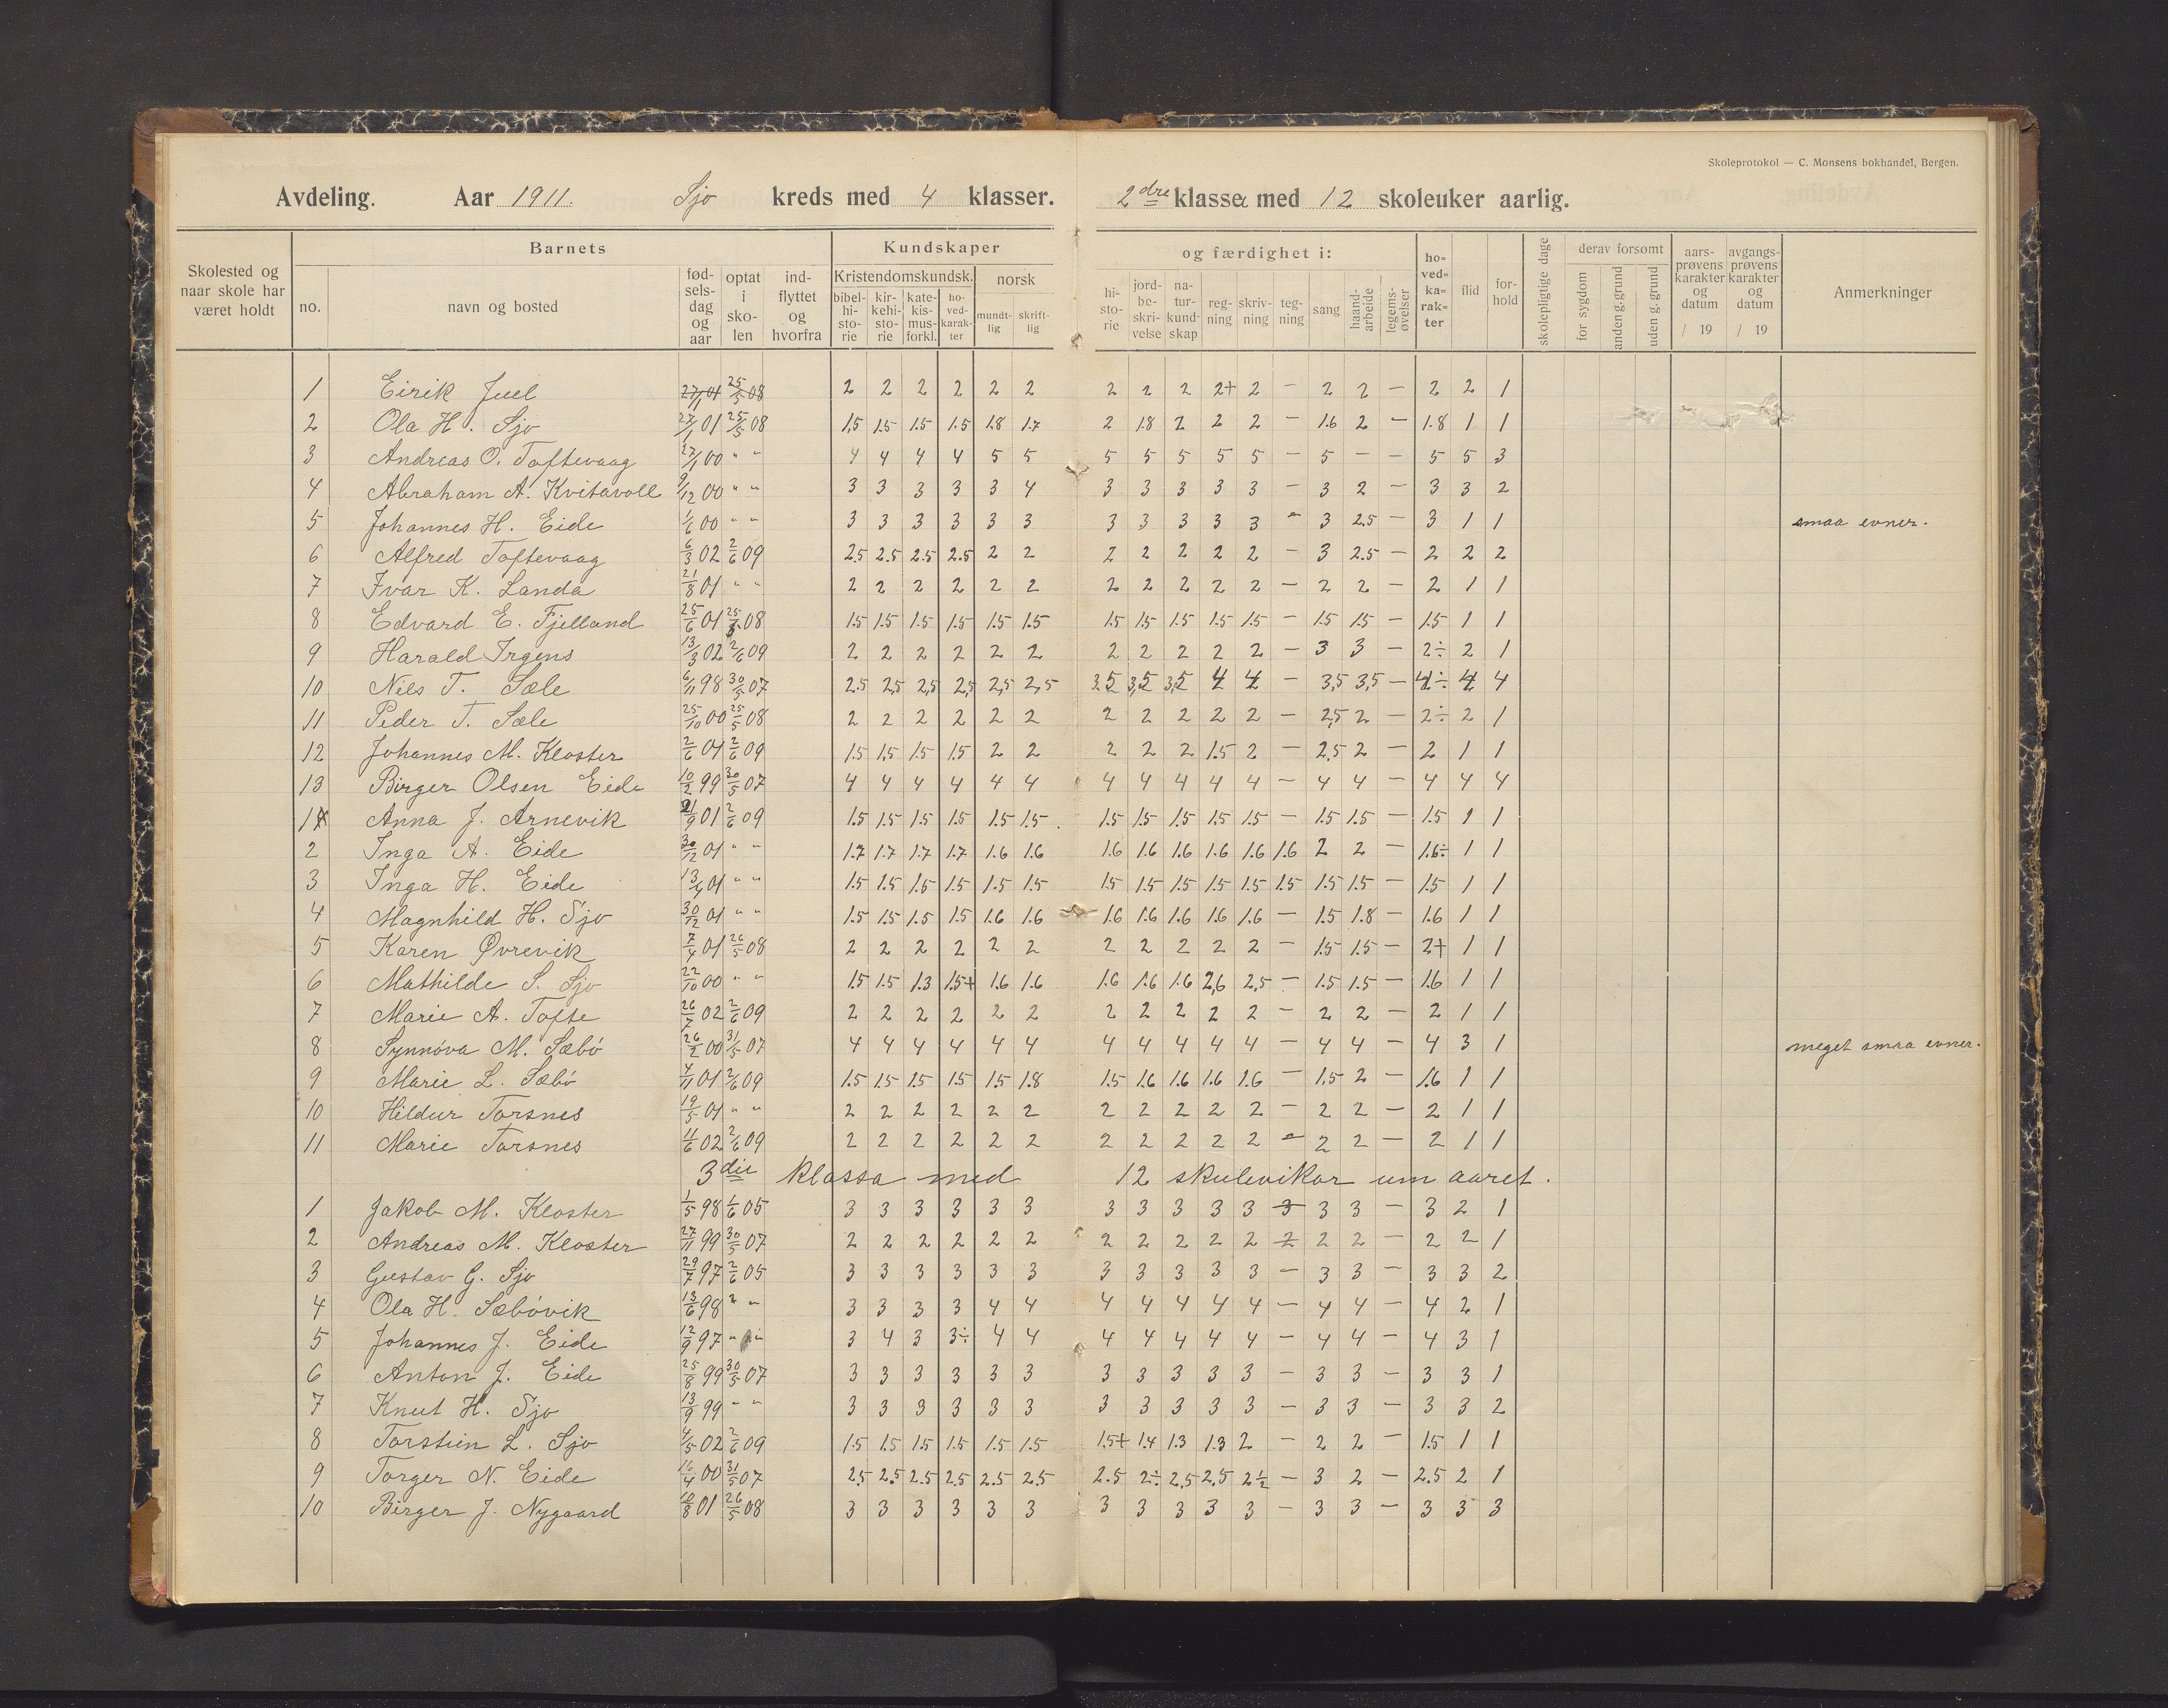 Skoleprotokol — C. Monsens bokhandel, Bergen.
Avdeling. Aar 1911. Sjo kreds med 4 klasser. 2dre klasse med 12 skoleuker aarlig.
Skolested og naar skole har været holdt
Barnets
no. navn og bosted fødselsdag og aar optat i skolen indflyttet og hvorfra
Kundskaper og færdighet i:
Kristendomskundsk. norsk
bibelhistorie kirkehistorie katekismusforkl. hovedkarakter mundtlig skriftlig
historie jordbeskrivelse naturkundskap regning skrivning tegning sang haandarbeide legemsøvelser
hovedkarakter flid forhold
skolepligtige dage derav forsømt for sygdom anden g. grund uden g. grund
aarsprøvens karakter og datum / 19 avgangsprøvens karakter og datum / 19
Anmerkninger
1 Eirik Juel 27/1 01 25/5 08 2 2 2 2 2 2 2 2 2 2+ 2 – 2 2 – 2 2 1
2 Ola H. Sjo 27/1 01 25/5 08 1,5 1.5 1.5 1.5 1.8 1.7 2 1.8 2 2 2 – 1.6 2 – 1.8 1 1
3 Andreas O. Toftevaag 27/1 00 " " 4 4 4 4 5 5 5 5 5 5 5 – 5 – – 5 5 3
4 Abraham A. Kvitavoll 9/12 00 " " 3 3 3 3 3 4 3 3 3 3 3 – 3 2 – 3 3 2
5 Johannes H. Eide 1/6 00 " " 3 3 3 3 3 3 3 3 3 3 3 – 3 2.5 – 3 1 1 smaa evner.
6 Alfred Toftevaag 6/3 02 2/6 09 2.5 2.5 2.5 2.5 2 2 2 2 2 2 2 – 3 2.5 – 2 2 2
7 Ivar K. Landa 21/8 01 " " 2 2 2 2 2 2 2 2 2 2 2 – 2 2 – 2 1 1
8 Edvard E. Fjelland 25/6 01 25/5 08 1.5 1.5 1.5 1.5 1.5 1.5 1.5 1.5 1.5 1.5 1.5 – 1.5 1.5 – 1.5 1 1
9 Harald Irgens 13/3 02 2/6 09 2 2 2 2 2 2 2 2 2 2 2 – 3 3 – 2÷ 2 1
10 Niels T. Sæle 6/11 98 30/5 07 2.5 2,5 2,5 2,5 2,5 2,5 3.5 3,5 3,5 4 4 – 3,5 3,5 – 4÷ 4 4
11 Peder T. Sæle 25/10 00 25/5 08 2 2 2 2 2 2 2 2 2 2 2 – 2,5 2 – 2÷ 2 1
12 Johannes M. Kloster 2/6 01 2/6 09 1.5 1,5 1.5 1.5 2 2 2 2 2 1.5 2 – 2,5 2 – 2 1 1
13 Birger Olsen Eide 10/2 99 30/5 07 4 4 4 4 4 4 4 4 4 4 4 – 4 4 – 4 4 4
1 Anna J. Arnevik 21/9 01 2/6 09 1.5 1.5 1.5 1.5 1.5 1.5 1.5 1.5 1.5 1.5 1.5 – 1.5 1.5 – 1.5 1 1
2 Inga A. Eide 30/12 01 " " 1.7 1.7 1.7 1.7 1.6 1.6 1.6 1.6 1.6 1.6 1.6 1.6 2 2 – 1.6÷ 1 1
3 Inga H. Eide 13/4 01 " " 1.5 1.5 1.5 1.5 1.5 1.5 1.5 1.5 1.5 1.5 1.5 1.5 1.5 1.5 – 1.5 1 1
4 Magnhild H. Sjo 30/12 01 " " 1.5 1.5 1.5 1.5 1.6 1.6 1.6 1.6 1.6 1.6 1.6 – 1.5 1.8 – 1.6 1 1
5 Karen Øvrevik 7/4 01 26/5 08 2 2 2 2 2 2 2 2 2 2 2 – 1.5 1.5 – 2+ 1 1
6 Mathilde S. Sjo 22/10 00 " " 1.5 1.5 1.3 1.5+ 1.6 1.6 1.6 1.6 1.6 2,6 2,5 – 1.5 1.5 – 1.6 1 1
7 Marie A. Tofte 26/7 02 2/6 09 2 2 2 2 2 2 2 2 2 2 2 – 2 2 – 2 1 1
8 Synnöva M. Sæbö 26/2 00 31/5 07 4 4 4 4 4 4 4 4 4 4 4 – 4 4 – 4 3 1 meget smaa evner.
9 Marie L. Sæbö 4/11 01 2/6 09 1.5 1.5 1.5 1.5 1.5 1.8 1.5 1.6 1.6 1.6 1.6 – 1.5 2 – 1.6 1 1
10 Hildur Torsnes 19/5 01 " " 2 2 2 2 2 2 2 2 2 2 2 – 2 2 – 2 1 1
11 Marie Torsnes 4/6 02 2/6 09 2 2 2 2 2 2 2 2 2 2 2 – 2 2 – 2 1 1
3die klassa med 12 skulevikor um aaret.
1 Jakob M. Kloster 1/5 98 1/6 05 3 3 3 3 3 3 3 3 3 3 3 3 3 3 – 3 2 1
2 Andreas M. Kloster 27/11 99 30/5 07 2 2 2 2 2 2 2 2 2 2 2 2 2 2 – 2 2 1
3 Gustav G. Sjo 29/7 97 2/6 05 3 3 3 3 3 3 3 3 3 3 3 – 3 3 – 3 3 2
4 Ola H. Sæbövik 13/6 98 " " 3 3 3 3 4 4 4 4 4 4 4 – 4 4 – 4 2 1
5 Johannes J. Eide 12/9 97 " " 3 4 3 3÷ 4 4 4 4 4 4 4 – 4 4 – 4 3 1
6 Anton J. Eide 25/8 99 30/5 07 3 3 3 3 3 3 3 3 3 3 3 – 3 3 – 3 3 1
7 Knut H. Sjo 13/9 99 " " 3 3 3 3 3 3 3 3 3 3 3 – 3 3 – 3 3 2
8 Torstein L. Sjo 4/5 02 2/6 09 1.5 1.5 1.5 1.5 1.5 1.5 1.5+ 1.4 1.3 1.3 2 – 2 2 – 1.5 1 1
9 Torger N. Eide 16/4 00 31/5 07 2.5 2.5 2.5 2.5 2.5 2.5 2.5 2÷ 2,5 2,5 2½ – 3 2 – 2.5 2 1
10 Birger J. Nygaard 10/8 01 26/5 08 3 3 3 3 3 3 3 3 3 3 3 – 3 3 – 3 3 3